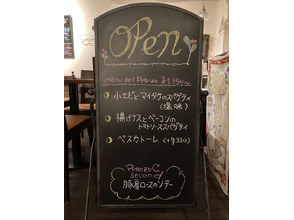 OPen
menu del Pranzo ¥1,350~
小エビとマイタケのスパゲティ
(塩味)
揚げナスとベーコンの
トマトソーススパゲティ
ペスカトーレ (+¥330)
Pranzo C
second
豚肩ロースのソテー